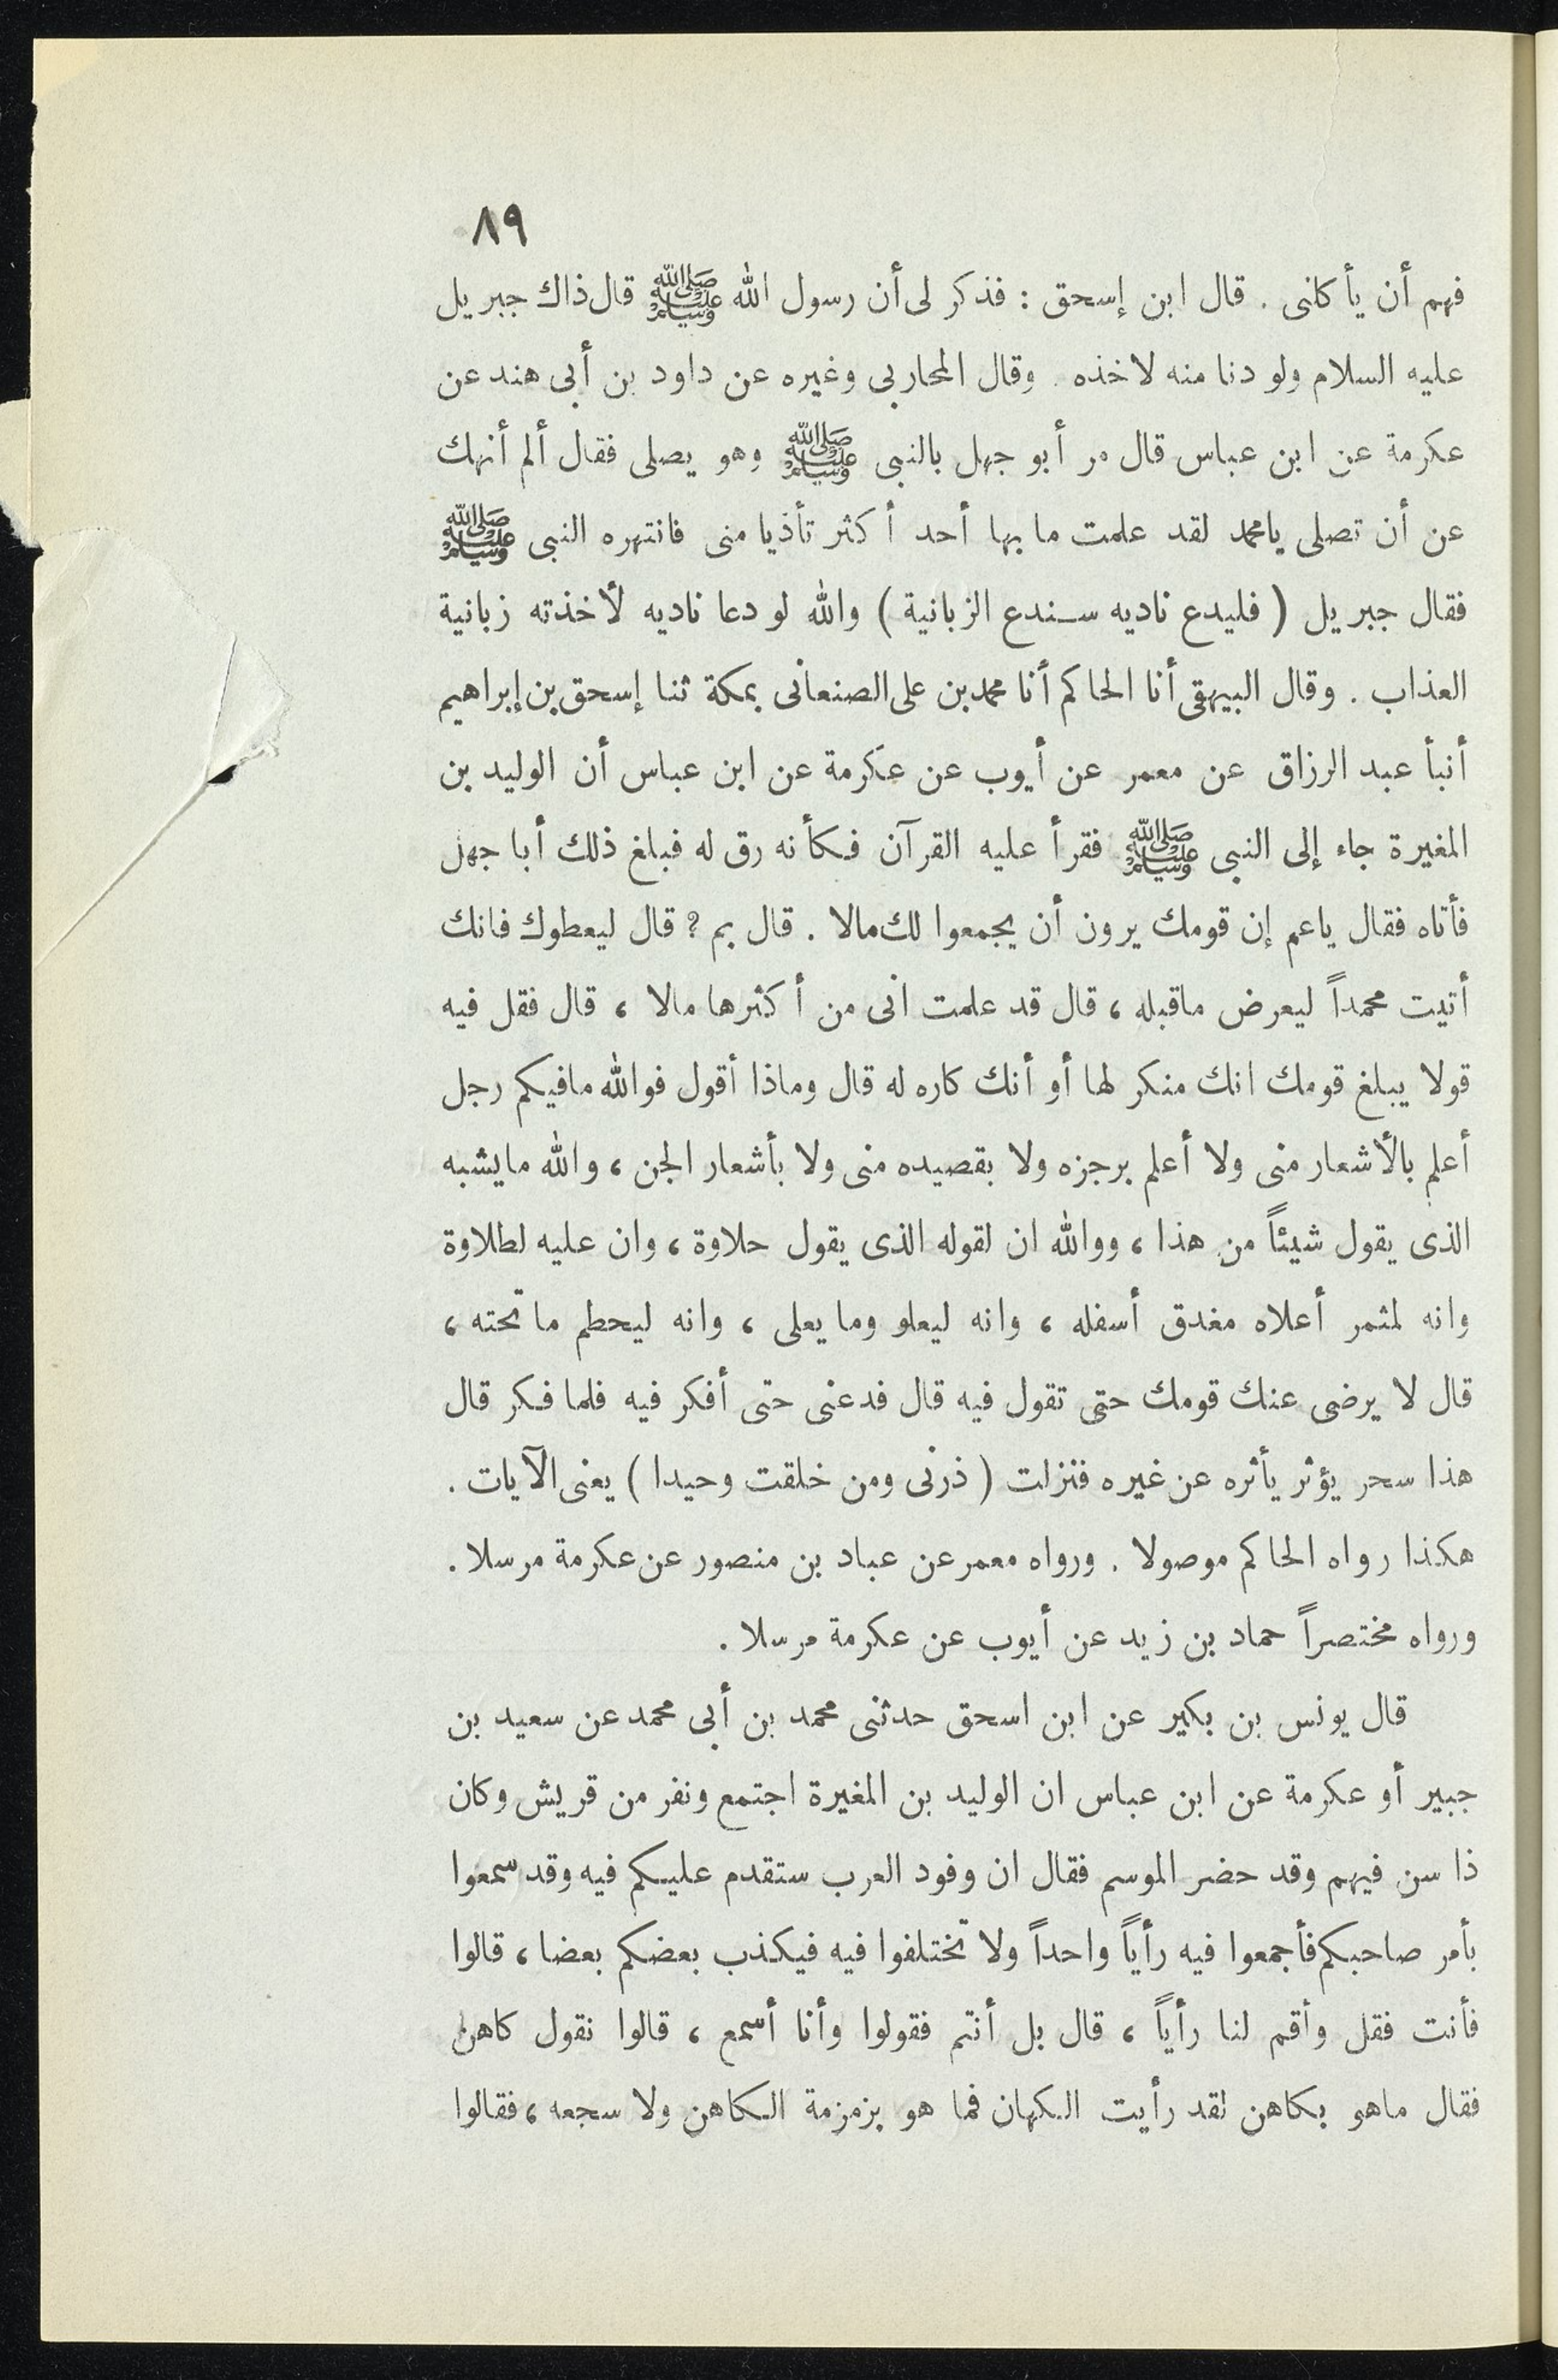 ٨٩
فهم أن يأكلنى . قال ابن إسحق : فذكر لى أن رسول الله ﷺ قال ذاك جبريل
عليه السلام ولو دنا منه لاخذه . وقال المحاربى وغيره عن داود بن أبى هند عن
عكرمة عن ابن عباس قال مر أبو جهل بالنبى ﷺ وهو يصلى فقال ألم أنهك
عن أن تصلى يامحمد لقد علمت ما بها أحد أكثر تأذيا منى فانتهره النبى ﷺ
فقال جبريل ( فليدع ناديه سندع الزبانية ) والله لو دعا ناديه لأخذته زبانية
العذاب . وقال البيهقى أنا الحاكم أنا محمد بن على الصنعانى بمكة ثنا إسحق بن إبراهيم
أنبأ عبد الرزاق عن معمر عن أيوب عن عكرمة عن ابن عباس أن الوليد بن
المغيرة جاء إلى النبى ﷺ فقرأ عليه القرآن فكأنه رق له فبلغ ذلك أبا جهل
فأتاه فقال ياعم إن قومك يرون أن يجمعوا لك مالا . قال بم ? قال ليعطوك فانك
أتيت محمداً ليعرض ماقبله ، قال قد علمت انى من أكثرها مالا ، قال فقل فيه
قولا يبلغ قومك انك منكر لها أو أنك كاره له قال وماذا أقول فوالله مافيكم رجل
أعلم بالأشعار منى ولا أعلم برجزه ولا بقصيده منى ولا بأشعار الجن ، والله مايشبه
الذى يقول شيئاً من هذا ، ووالله ان لقوله الذى يقول حلاوة ، وان عليه لطلاوة
وانه لمثمر أعلاه مغدق أسفله ، وانه ليعلو وما يعلى ، وانه ليحطم ما تحته ،
قال لا يرضى عنك قومك حتى تقول فيه قال فدعنى حتى أفكر فيه فلما فكر قال
هذا سحر يؤثر يأثره عن غيره فنزلت ( ذرنى ومن خلقت وحيدا ) يعنى الآيات .
هكذا رواه الحاكم موصولا . ورواه معمر عن عباد بن منصور عن عكرمة مرسلا .
ورواه مختصراً حماد بن زيد عن أيوب عن عكرمة مرسلا .
قال يونس بن بكير عن ابن اسحق حدثنى محمد بن أبى محمد عن سعيد بن
جبير أو عكرمة عن ابن عباس ان الوليد بن المغيرة اجتمع ونفر من قريش وكان
ذا سن فيهم وقد حضر الموسم فقال ان وفود العرب ستقدم عليكم فيه وقد سمعوا
بأمر صاحبكم فأجمعوا فيه رأياً واحداً ولا تختلفوا فيه فيكذب بعضكم بعضا ، قالوا
فأنت فقل وأقم لنا رأياً ، قال بل أنتم فقولوا وأنا أسمع ، قالوا نقول كاهن
فقال ماهو بكاهن لقد رأيت الكهان فما هو بزمزمة الكاهن ولا سجعه ، فقالوا